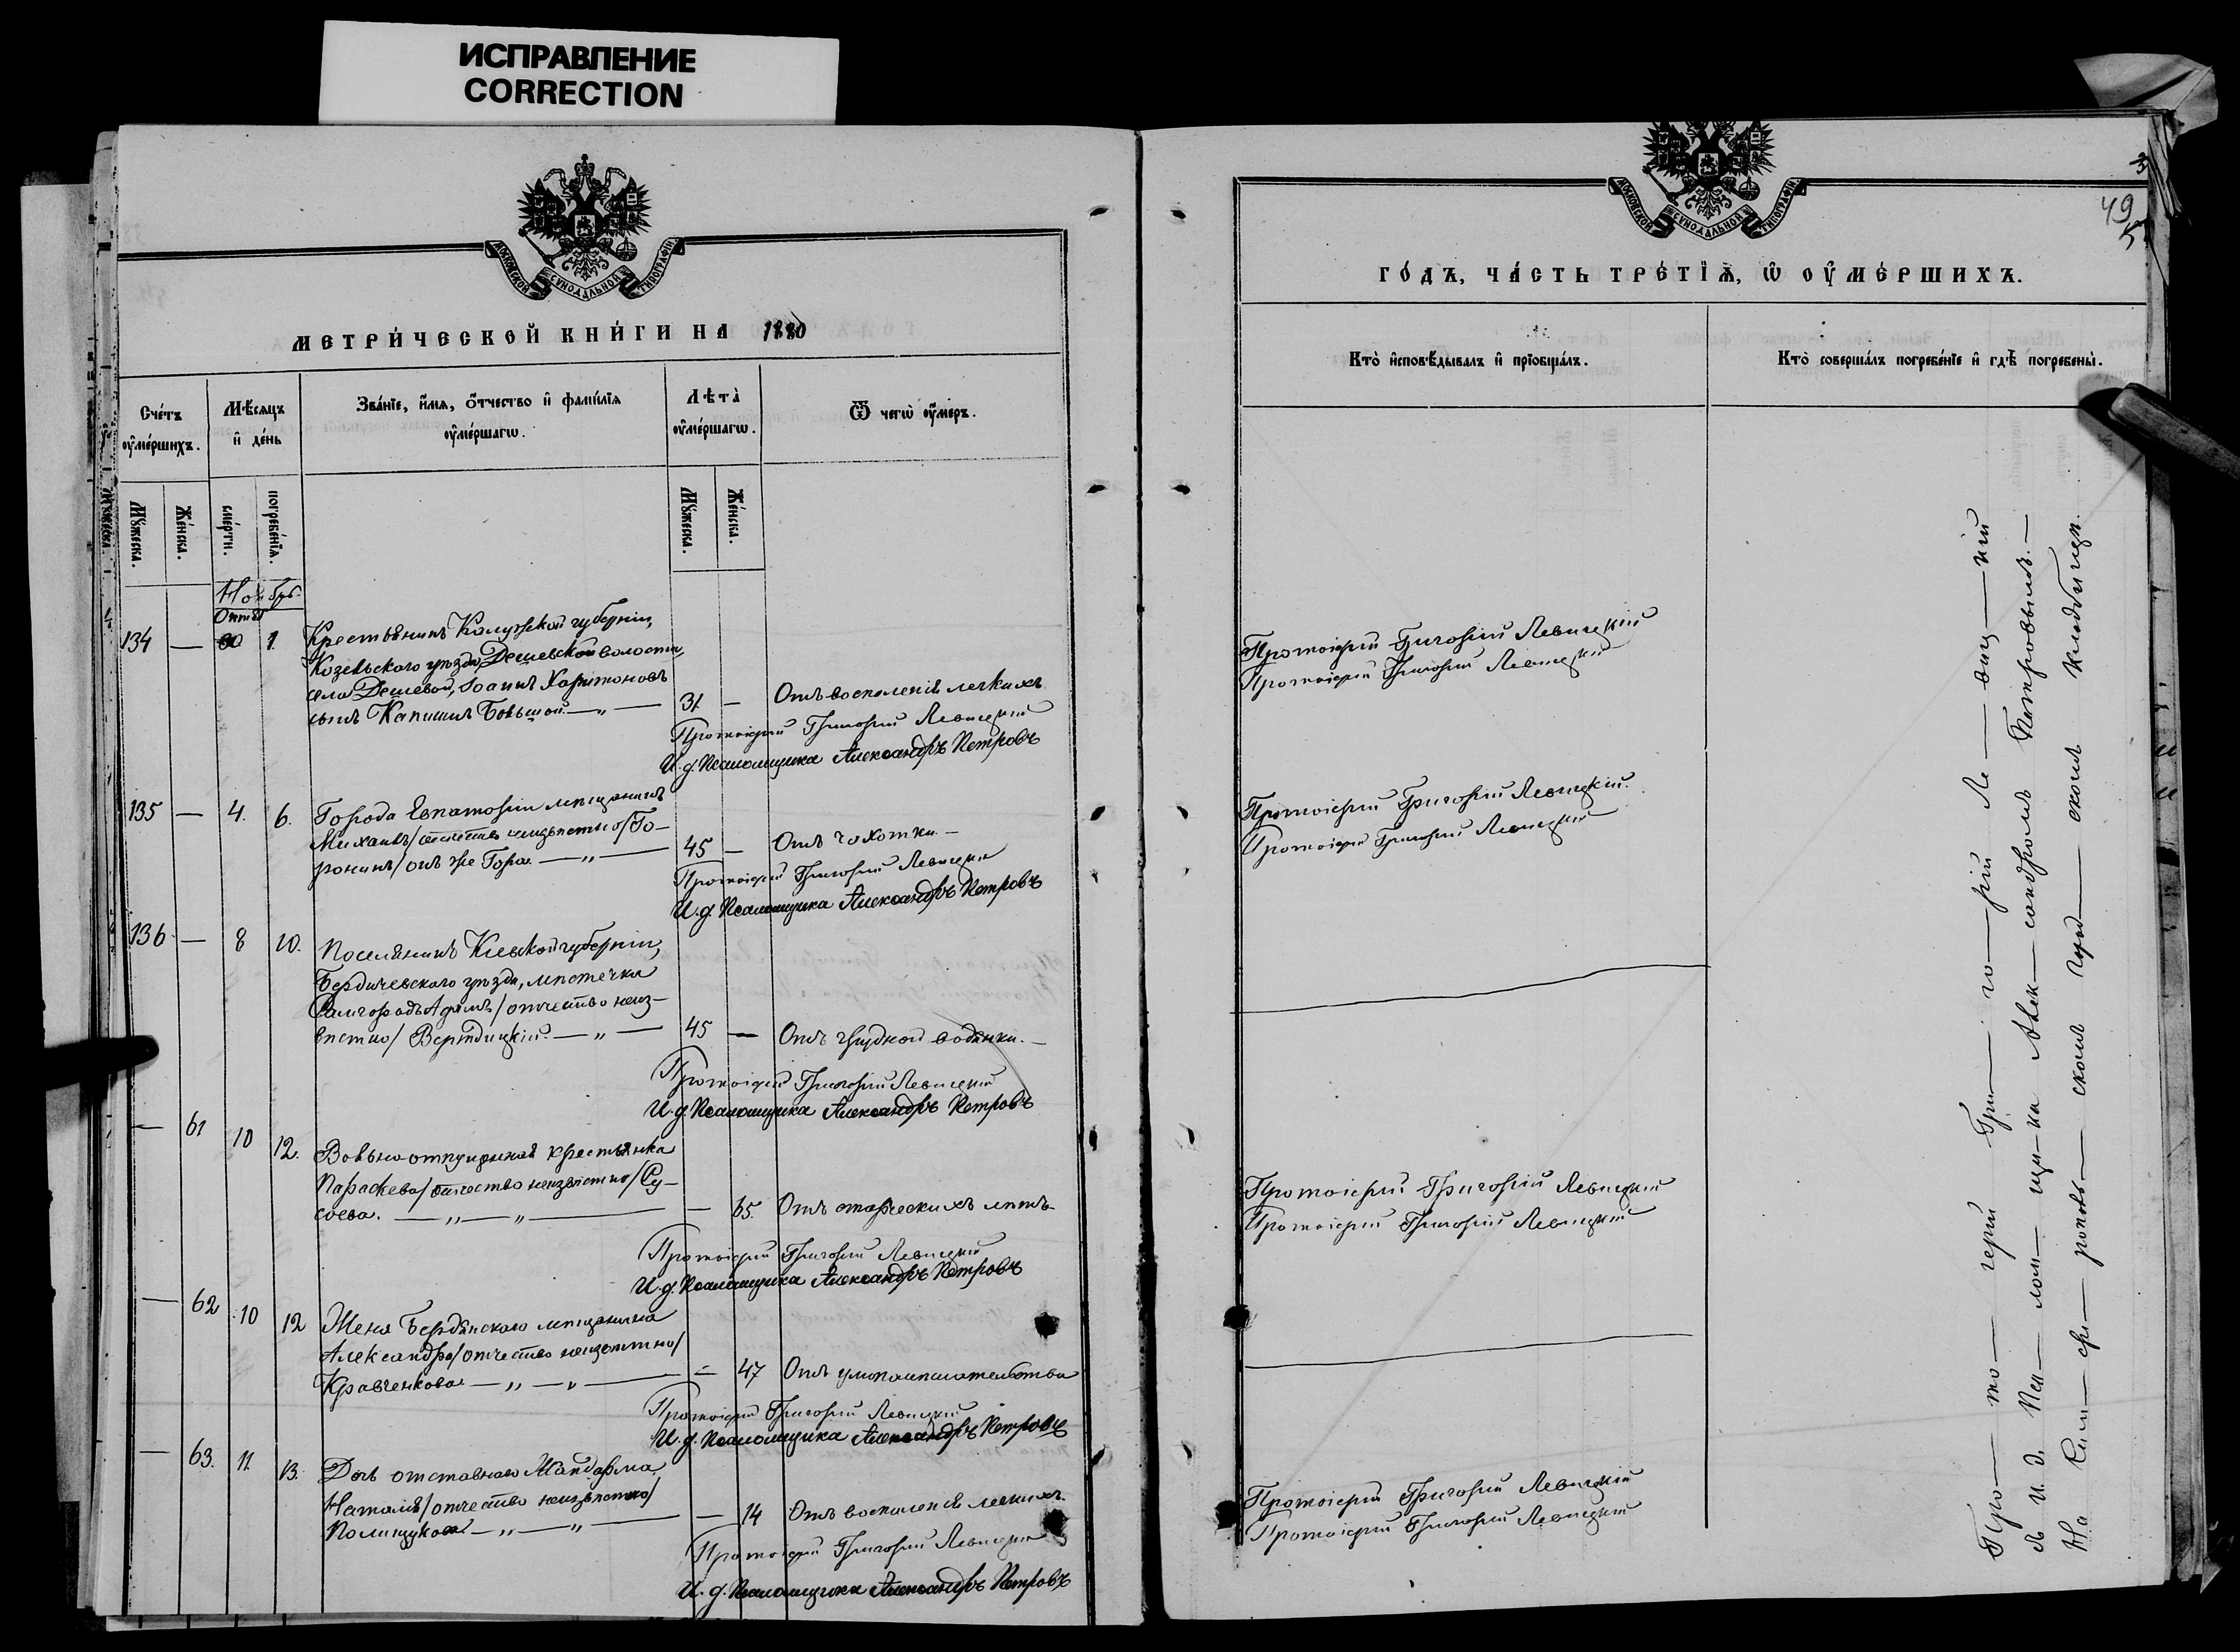 ИСПРАВЛЕНИЕ
CORRECTION
МОСКОВСКОЙ СѴНОДАЛЬНОЙ ТИПОГРАФІИ.
МЕТРИ́ЧЕСКОЙ КНИ́ГИ НА 1880
Сче́тъ ѹ҆ме́ршихъ.
Мѣ́сяцъ и҆ де́нь
Зва́нїе, и҆́мѧ, ѻ҆́тчество и҆ фами́лїѧ ѹ҆ме́ршагѡ.
Лѣта̀ ѹ҆ме́ршагѡ.
Ѿ чегѡ̀ ѹ҆́меръ.
Мꙋ́жеска.
Же́нска.
сме́рти.
погребе́нїѧ.
Мꙋ́жеска.
Же́нска.
Ноябрь
Октяб
134 — 30 1. Крестьянинъ Калужской губерніи,
Козельскаго уѣзда, Дешевской волости,
села Дешевой, Іоаннъ Харитоновъ
сынъ Капишинъ Большой — „ — 31 — Отъ воспаленія легкихъ
Протоіерей Григорій Левицкій
И. д. Псаломщика Александръ Петровъ
135 — 4. 6. Города Евпаторіи мѣщанинъ
Михаилъ /отчество неизвѣстно/ Го-
ронинъ /онъ же Гора — „ — 45 — Отъ чахотки. —
Протоіерей Григорій Левицкій
И. д. Псаломщика Александръ Петровъ
136 — 8 10. Поселянинъ Кіевской губерніи,
Бердичевскаго уѣзда, мѣстечка
Самгородъ Адамъ /отчество неиз-
вѣстно/ — „ — 45 — Отъ грудной водянки. —
Протоіерей Григорій Левицкій
И. д. Псаломщика Александръ Петровъ
— 61 10 12. Вольно-отпущенная крестьянка
Параскева /отчество неизвѣстно/ Су-
соева. — „ — „ — — 65. Отъ старческихъ лѣтъ
Протоіерей Григорій Левицкій
И. д. Псаломщика Александръ Петровъ
— 62 10 12 Жена Бердянскаго мѣщанина
Александра /отчество неизвѣстно/
Кравченкова — „ — „ — — 47 Отъ умопомѣшательства
Протоіерей Григорій Левицкій
И. д. Псаломщика Александръ Петровъ
— 63. 11. 13. Дочь отставнаго Жандарма
Наталія /отчество неизвѣстно/
Полищукова — „ — „ — — 14 Отъ воспаленія легкихъ.
Протоіерей Григорій Левицкій
И. д. Псаломщика Александръ Петровъ
МОСКОВСКОЙ СѴНОДАЛЬНОЙ ТИПОГРАФІИ.
49
ГО́ДЪ, ЧА́СТЬ ТРЕ́ТЇѦ, Ѡ҆ ѸМЕ́РШИХЪ.
Кто̀ и҆сповѣ́дывалъ и҆ прїобща́лъ.
Кто̀ соверша́лъ погребе́нїе и҆ гдѣ̀ погребены̀.
Протоіерей Григорій Левицкій
Протоіерей Григорій Левицкій
Протоіерей Григорій Левицкій.
Протоіерей Григорій Левицкій
Протоіерей Григорій Левицкій
Протоіерей Григорій Левицкій
Протоіерей Григорій Левицкій
Протоіерей Григорій Левицкій
Про — то — іерей Гри — го — рій Ле — виц — кій
съ и. д. Пса — лом — щи — ка Алек — сандромъ Петровымъ. —
На Сим — фе — рополь — скомъ город — скомъ кладбищѣ.